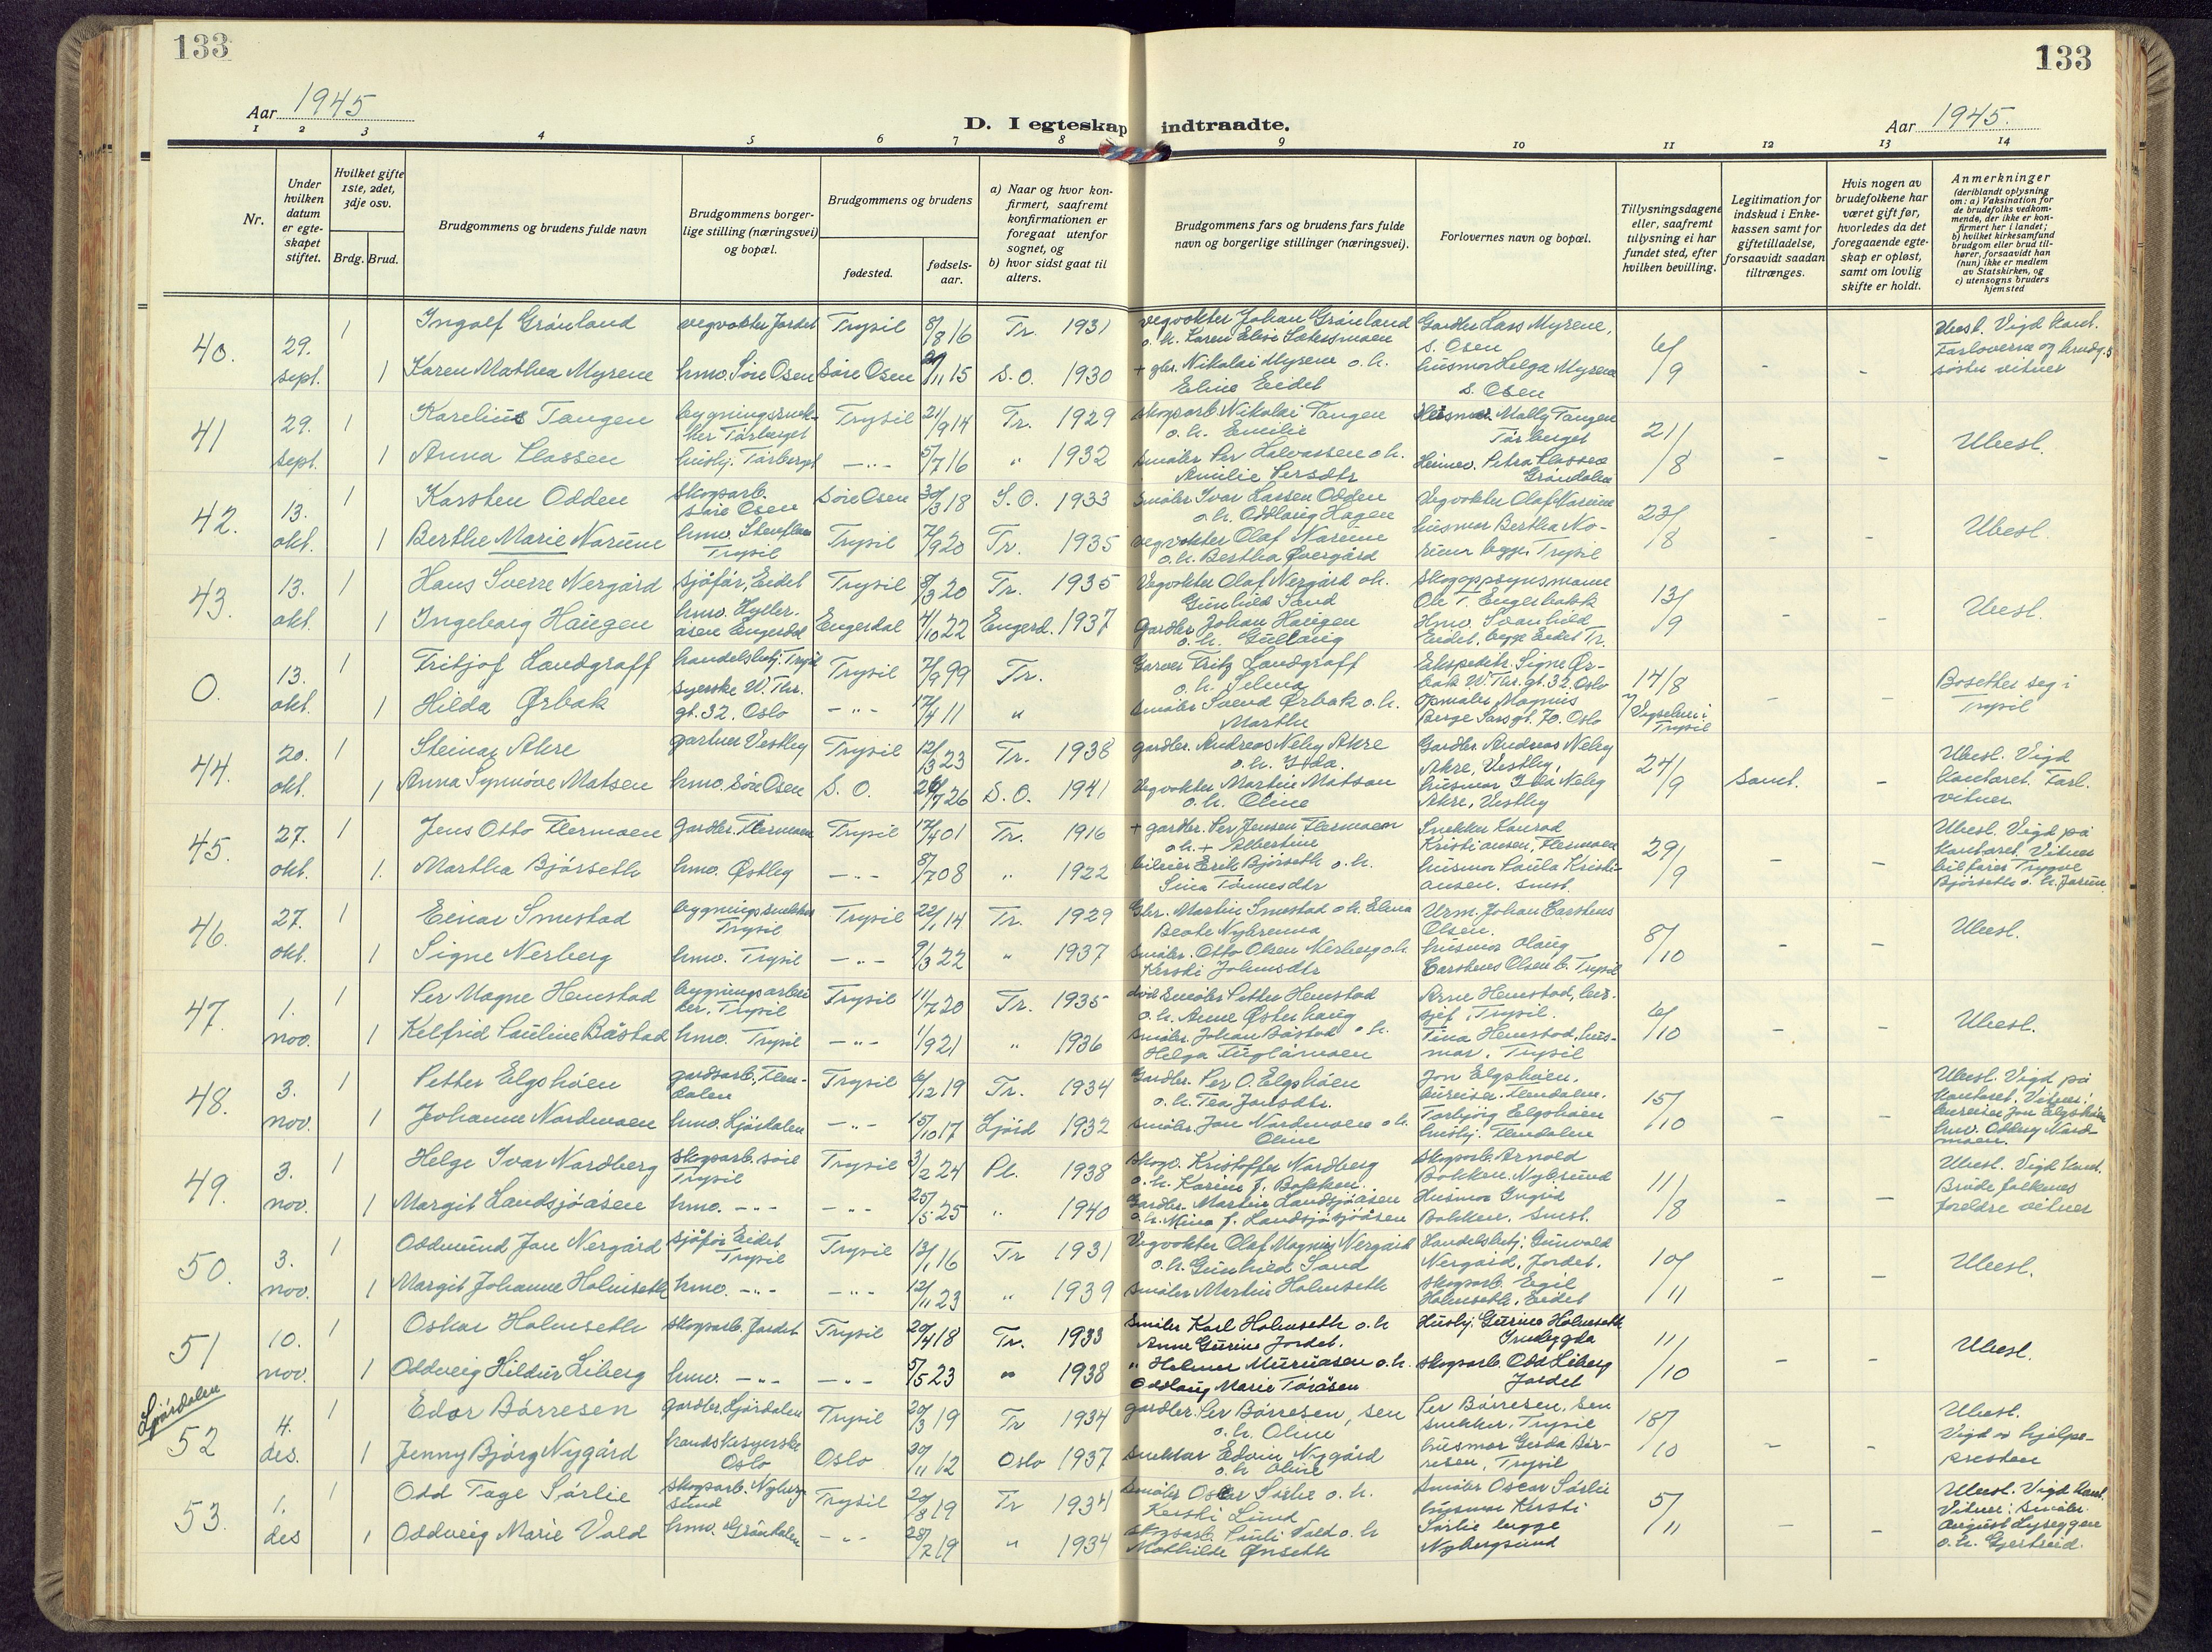 133
133
Aar 1945
D. I egteskap indtraadte.
Aar 1945.
1 2 3 4 5 6 7 8 9 10 11 12 13 14
Nr.
Under hvilken datum er egteskapet stiftet.
Hvilket gifte 1ste, 2det, 3dje osv.
Brdg. Brud.
Brudgommens og brudens fulde navn
Brudgommens borgerlige stilling (næringsvei) og bopæl.
Brudgommens og brudens
fødested.
fødselsaar.
a) Naar og hvor konfirmert, saafremt konfirmationen er foregaat utenfor sognet, og
b) hvor sidst gaat til alters.
Brudgommens fars og brudens fars fulde navn og borgerlige stillinger (næringsvei).
Forlovernes navn og bopæl.
Tillysningsdagene eller, saafremt tillysning ei har fundet sted, efter hvilken bevilling.
Legitimation for indskud i Enkekassen samt for giftetilladelse, forsaavidt saadan tiltrænges.
Hvis nogen av brudefolkene har været gift før, hvorledes da det foregaaende egteskap er opløst, samt om lovlig skifte er holdt.
Anmerkninger
(deriblandt oplysning om: a) Vaksination for de brudefolks vedkommende, der ikke er konfirmert her i landet; b) hvilket kirkesamfund brudgom eller brud tilhører, forsaavidt han (hun) ikke er medlem av Statskirken, og c) utensogns bruders hjemsted
40. 29. sept. 1 Ingolf Grönland vegvokter Jordet Trysil 8/8 16 Tr. 1931 vegvokter Johan Grönland o.h. Karen Elise Sætersmoen Gardbr. Lars Myrene, S. Osen 6/9 - - Ubesl. Vigd kont. Forloverne og brudg.s søster vitner
1 Karen Mathea Myrene hmv. Söre Osen Söre Osen /11 15 S.O. 1930 + gbr. Nikolai Myrene o.h. Eline Eidet husmor Helga Myrene S. Osen
41 29. sept. 1 Karelius Tangen bygningssnekker Törberget Trysil 21/9 14 Tr. 1929 skogsarb. Nikolai Tangen o.h. Emilie Husmor Mally Tangen Törberget 21/8 - - Ubesl.
1 Anna Classen hushj. Törberget -"- 5/7 16 " 1932 Småbr. Per Halvassen o.h. Amilie Persdtr Heimev. Petra Grøndalen
42. 13. okt. 1 Karsten Odden Skogsarb. Söre Osen Söre Osen 30/3 18 S.O. 1933 Småbr. Ivar Larsen Odden o.h. Oddlaug Hagen Vegvokter Olaf Norune 23/8 - - Ubesl.
1 Berthe Marie Norune hmv. Trysil Trysil 7/9 20 Tr. 1935 vegvokter Olaf Norune o.h. Bertha Övergård husmor Bertha Norune begge Trysil
43. 13. okt. 1 Hans Sverre Nergård sjåför, Eidet Trysil 8/3 20 Tr. 1935 Vegvokter Olaf Nergård o.h. Gunhild Sand Skogoppsynsmann Ole T. Engerbakk 13/9 - - Ubesl.
1 Ingeborg Haugen hmv. Hylleråsen Engerdal Engerdal 4/10 22 Engerd. 1937 gardbr. Johan Haugen o.h. Gullaug Hmv. Svanhild Eidet, begge Eidet Tr.
0. 13. okt. 1 Fritjof Landgraff handelsbetj. Trysil Trysil 7/9 99 Tr. Garver Fritz Landgraff o.h. Selma Ekspeditr. Signe Ørbak W. Thr. gt. 32. Oslo 14/8 - - Bosetter seg i Trysil
1 Hilda Ørbak syerske W. Thr. gt. 32. Oslo -"- 17/4 11 " Småbr Svend Ørbak o.h. Marthe Opmåler Magnus Berge Sarsgt. 70. Oslo Vigselen i Trysil
44. 20. okt. 1 Steinar Akre gartner Vestby Trysil 12/3 23 Tr. 1938 gardbr. Andreas Neby Akre o.h. Ida. Gardbr. Andreas Neby Akre, Vestby, 24/9 Samt. - Ubesl. Vigd kontoret. Forl. vitner
1 Anna Synnöve Matsen hmv. Söre Osen S. O. /7 26 S.O. 1941 Vegvokter Martin Matsen o.h. Oline husmor Ida Neby Akre, Vestby
45. 27. okt. 1 Jens Otto Flermoen Gardbr. Flermoen Trysil 17/4 01 Tr. 1916 + gardbr. Per Jensen Flermoen o.h. + Albertine Snekker Konrad Kristiansen, Flermoen 29/9 - - Ubesl. Vigd på kontoret. Vitner bileier Trygve Björseth o.h. Jorun
1. Martha Björseth hmv. Østby -"- 8/7 08 " 1922 bileier Erik Björseth o.h. Sina Tönnesdtr husmor Paula Kristiansen. smst.
46. 27. okt. 1 Einar Smestad bygningssnekker Trysil Trysil 22/1 14 Tr. 1929 Gbr. Martin Smestad o.h. Elena Beate Nybrenna Urm. Johan Carstens Olsen. 8/10 - - Ubesl.
1 Signe Nerberg hmv. Trysil -"- 9/3 22 " 1937 Småbr. Otto Olsen Nerberg o.h. Kersti Johnsdtr husmor Olaug Carstens Olsen b. Trysil
47. 1. nov. 1 Per Magne Hemstad bygningsarbeider. Trysil Trysil 11/7 20 Tr. 1935 död Småbr Petter Hemstad o.h. Anne Østerhaug Arne Hemstad, lenssjef, Trysil. 6/10 - - Ubesl.
1 Kelfrid Pauline Båstad hmv. Trysil -"- 1/9 21 " 1936 Småbr. Johan Båstad o.h. Helga Fuglåmoen Tina Hemstad, husmor, Trysil
48. 3. nov. 1 Petter Elgshöen gardsarb. Flendalen Trysil 6/12 19 Tr. 1934 Gardbr. Per O. Elgshöen o.h. Tea Jonsdtr. Jon Elgshöen, bureiser. Flendalen. 15/10 - - Ubesl. Vigd på kontoret. Vitner: bureiser Jon Elgshöen hmv. Oddny Nordmoen.
1 Johanne Nordmoen hmv. Ljördalen -"- 15/10 17 Ljörd 1932 Småbr. Jon Nordmoen o.h. Oline Torbjörg Elgshöen hushj. Flendalen
49. 3. nov. 1 Helge Ivar Nordberg Skogsarb. söre Trysil Trysil 3/2 24 Pl. 1938 Skogv. Kristoffer Nordberg o.h. Karine J. Bakken. Skogsarb. Arnold Bakken. Nybsund 11/8 - - Ubesl. Vigd kont. Brudefolkenes foreldre vitner
1 Margit Landsjöåsen hmv. -"- -"- 25/5 25 " 1940 Gardbr. Martin Landsjöåsen o.h. Mina J. Landsjösjöåsen Husmor Ingrid Bakken. Smst.
50. 3. nov. 1 Oddmund Jan Nergård sjåför Eidet Trysil Trysil 13/1 16 Tr 1931 Vegvokter Olaf Magnus Nergård o.h. Gunhild Sand Handelsbetj. Gunvald Nergård, Jordet. 10/11 - - Ubesl.
1 Margit Johanne Holmseth hmv. -"- -"- 12/11 23 " 1939 Småbr Martin Holmseth Skogsarb. Egil Holmseth, Eidet
51 10. nov. 1 Oskar Holmseth Skogsarb. Jordet Trysil 20/4 18 Tr. 1933 Småbr Karl Holmseth o.h Anne Gurine Jordet. Hushj. Gurine Holmseth Innbygda 11/10 - - Ubesl.
1 Oddveig Hildur Liberg hmv. -"- -"- 5/5 23 " 1938 " Helmer Muruåsen o.h. Oddlaug Marie Töråsen Skogsarb. Odd Liberg Jordet
Ljördalen
52 4. des. 1 Edor Börresen gardbr. Ljördalen Trysil 20/3 19 Tr 1934 gardbr. Per Börresen, sen o.h. Oline Per Börresen, sen snekker. Trysil 18/10 - - Ubesl. Vigd av hjelpepresten
1 Jenny Bjørg Nygård handskesyerske Oslo Oslo 20/11 12 Oslo 1937 Snekker Edvin Nygård o.h Oline husmor Gerda Börresen, Trysil
53. 1. des 1 Odd Tage Sörlie Skogsarb. Nybergsund Trysil 20/8 19 Tr 1934 Småbr Oscar Sörlie o.h. Kersti Lund Småbr Oscar Sörlie 5/11 - - Ubesl. Vigd kont. Vitner: Småbr. August Lyseggen o.h. Gjertrud.
1 Oddveig Marie Vold hmv. Gröndalen -"- 28/7 19 " 1934 Skogsarb. Pauli Vold o.h Mathilde Ønseth husmor Kersti Sörlie begge Nybergsund